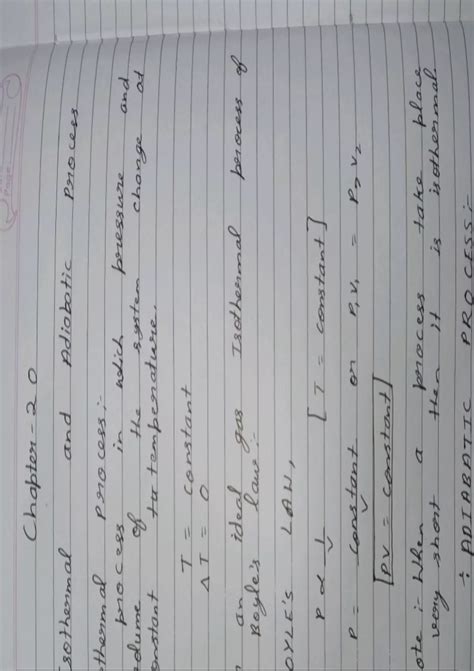 Chapter-20
isothermal and Adiobatic process
thermal process:-
process in which pressure and
olume of the system change at
onstant to temperature.
T = constant
ΔT = 0
an ideal gas Isothermal process of
Boyle's law:-
OYLE'S LAW,
P ∝ 1/V [T = constant]
P = constant/V or P₁V₁ = P₂V₂
[PV = constant]
ote:- When a process take place
very short then it is isothermal.
: ADIABATIC PROCESS:-